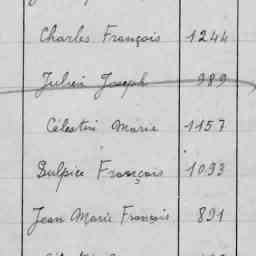 Charles François 1244
Julien Joseph 989
Célestin Marie 1157
Sulpice François 1093
Jean Marie François 891